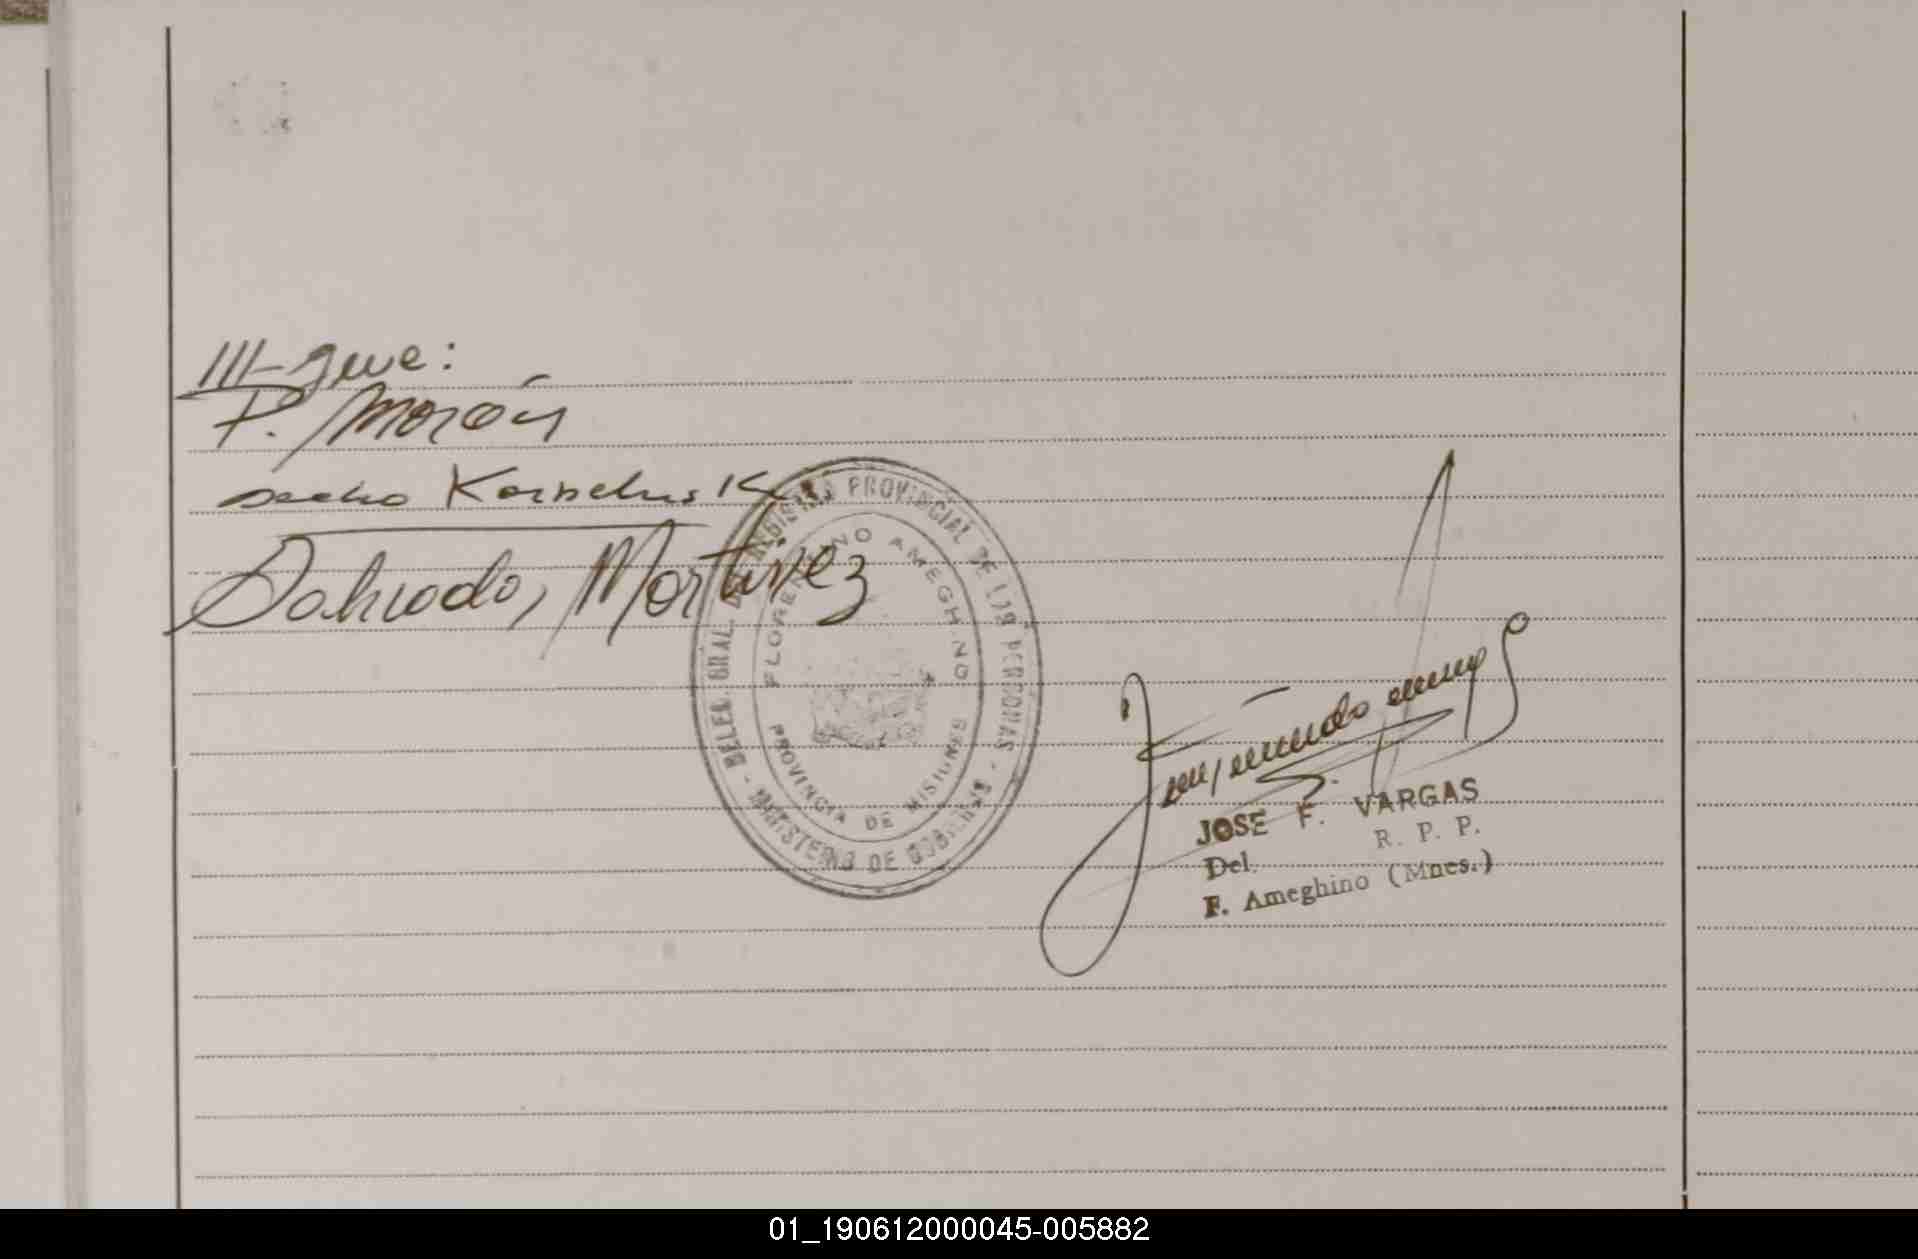 III-gue:
P. Morán
Salvado, Martinez
DELEG. GRAL. DEL REGISTRO PROVINCIAL DE LAS PERSONAS - MINISTERIO DE GOBIERNO
FLORENTINO AMEGHINO
PROVINCIA DE MISIONES
JOSE F. VARGAS
Del. R. P. P.
F. Ameghino (Mnes.)
01_190612000045-005882